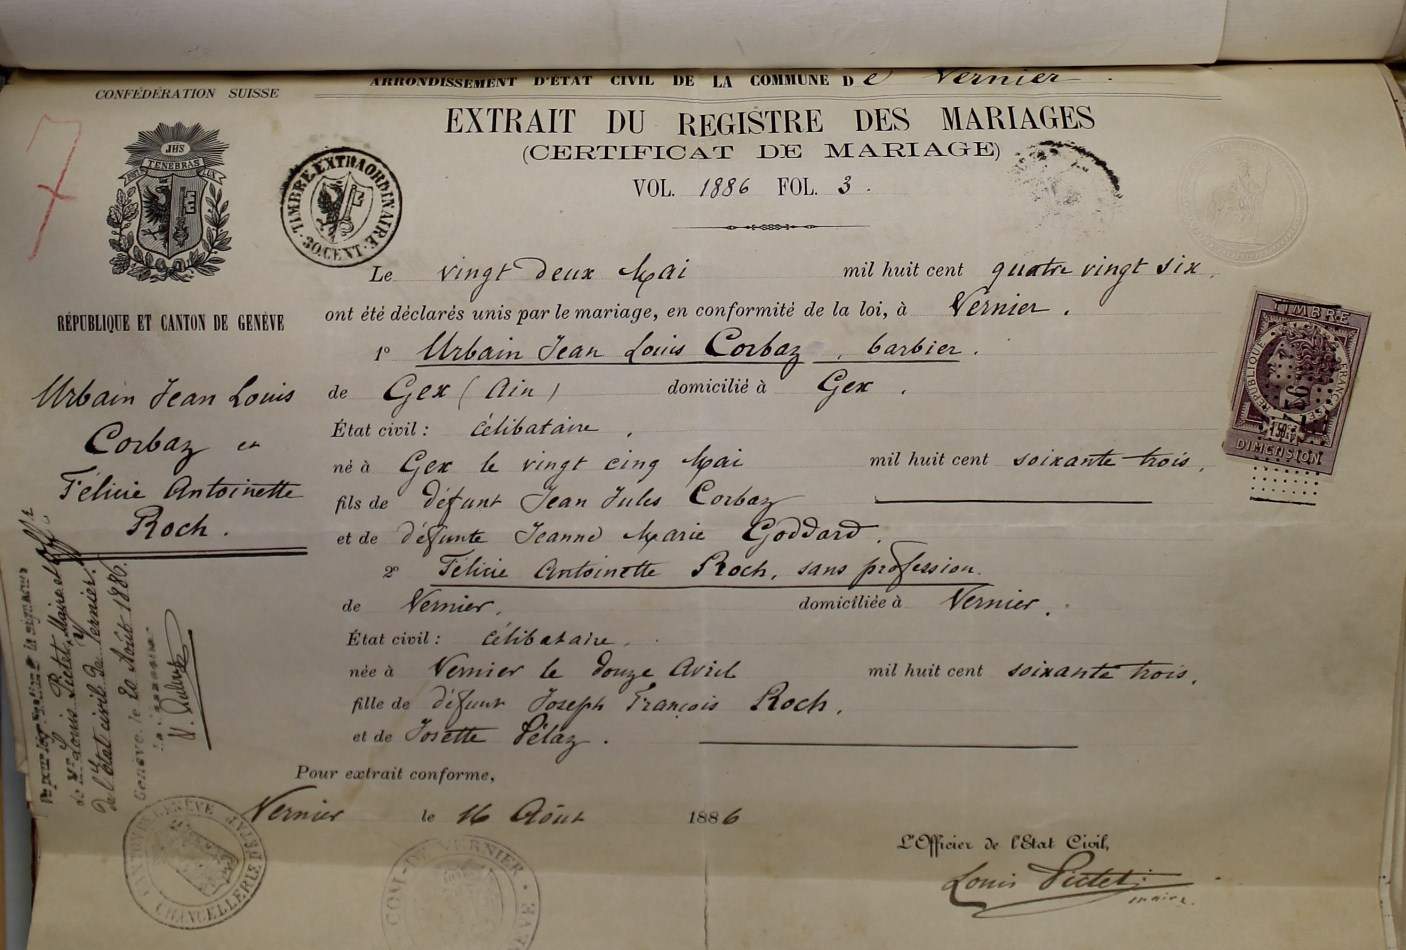 ARRONDISSEMENT D'ÉTAT CIVIL DE LA COMMUNE De Vernier.
CONFÉDÉRATION SUISSE
EXTRAIT DU REGISTRE DES MARIAGES
(CERTIFICAT DE MARIAGE)
VOL. 1886 FOL. 3.
7
JHS
POST TENEBRAS LUX
TIMBRE.EXTRAORDINAIRE
30.CENT.
RÉPUBLIQUE ET CANTON DE GENÈVE
Urbain Jean Louis
Corbaz et
Félicie Antoinette
Roch.
Le vingt deux Mai mil huit cent quatre vingt six.
ont été déclarés unis par le mariage, en conformité de la loi, à Vernier.
1º Urbain Jean Louis Corbaz, barbier.
de Gex (Ain) domicilié à Gex.
État civil: célibataire.
né à Gex le vingt cinq Mai mil huit cent soixante trois.
fils de défunt Jean Jules Corbaz
et de défunte Jeanne Marie Goddard.
2º Félicie Antoinette Roch, sans profession.
de Vernier. domiciliée à Vernier.
État civil: célibataire.
née à Vernier le douze Avril mil huit cent soixante trois.
fille de défunt Joseph François Roch.
et de Josette Pélaz.
Pour extrait conforme,
Vernier le 16 Août 1886
L'Officier de l'Etat Civil,
Louis Pictet
maire.
TIMBRE
RÉPUBLIQUE FRANÇAISE
1F50c
DIMENSION
la signature
de Mr Louis Pictet, Maire et Offr
de l'Etat civil de Vernier.
Genève, le 20 Août 1886.
CANTON DE GENÈVE
CHANCELLERIE D'ETAT
COM. DE VERNIER